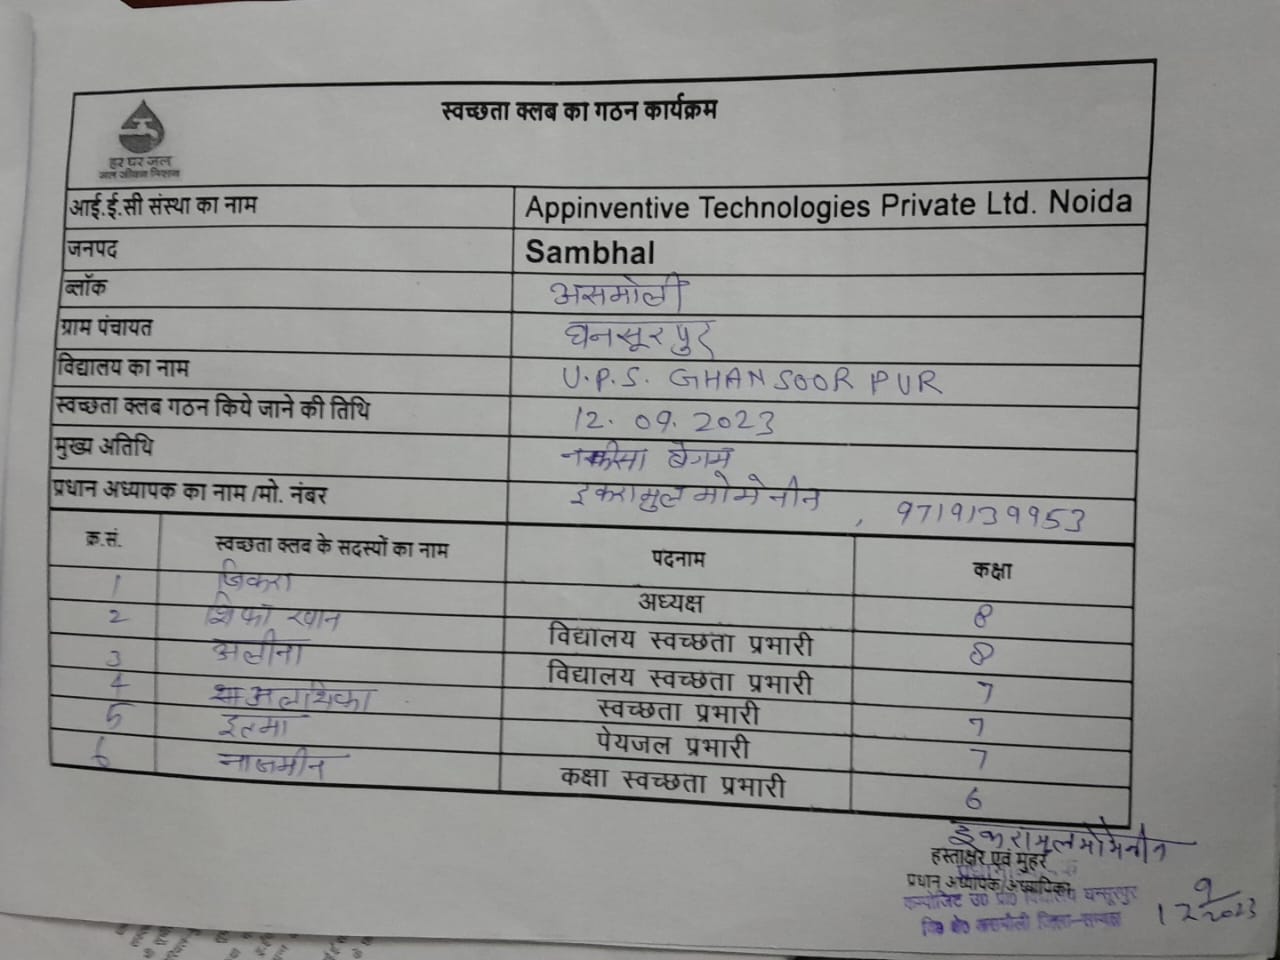 स्वच्छता क्लब का गठन कार्यक्रम
हर घर जल
जल जीवन मिशन
आई.ई.सी संस्था का नाम Appinventive Technologies Private Ltd. Noida
जनपद Sambhal
ब्लॉक असमोली
ग्राम पंचायत घनसूरपुर
विद्यालय का नाम U.P.S. GHANSOOR PUR
स्वच्छता क्लब गठन किये जाने की तिथि 12.09.2023
मुख्य अतिथि बेगम
प्रधान अध्यापक का नाम /मो. नंबर इकरामुल मोमेनीन, 9719139953
क्र.सं. स्वच्छता क्लब के सदस्यों का नाम पदनाम कक्षा
1 जिकरा अध्यक्ष 8
2 शिफा खान विद्यालय स्वच्छता प्रभारी 8
3 अलीना विद्यालय स्वच्छता प्रभारी 7
4 स्वच्छता प्रभारी 7
5 इलमा पेयजल प्रभारी 7
6 नाजमीन कक्षा स्वच्छता प्रभारी 6
इकरामुल मोमेनीन
हस्ताक्षर एवं मुहर
प्रधान अध्यापक/अध्यापिका
कम्पोजिट उ० प्रा० विद्यालय घनसूरपुर
वि० क्षे० असमौली जिला-सम्भल
12/9/2023